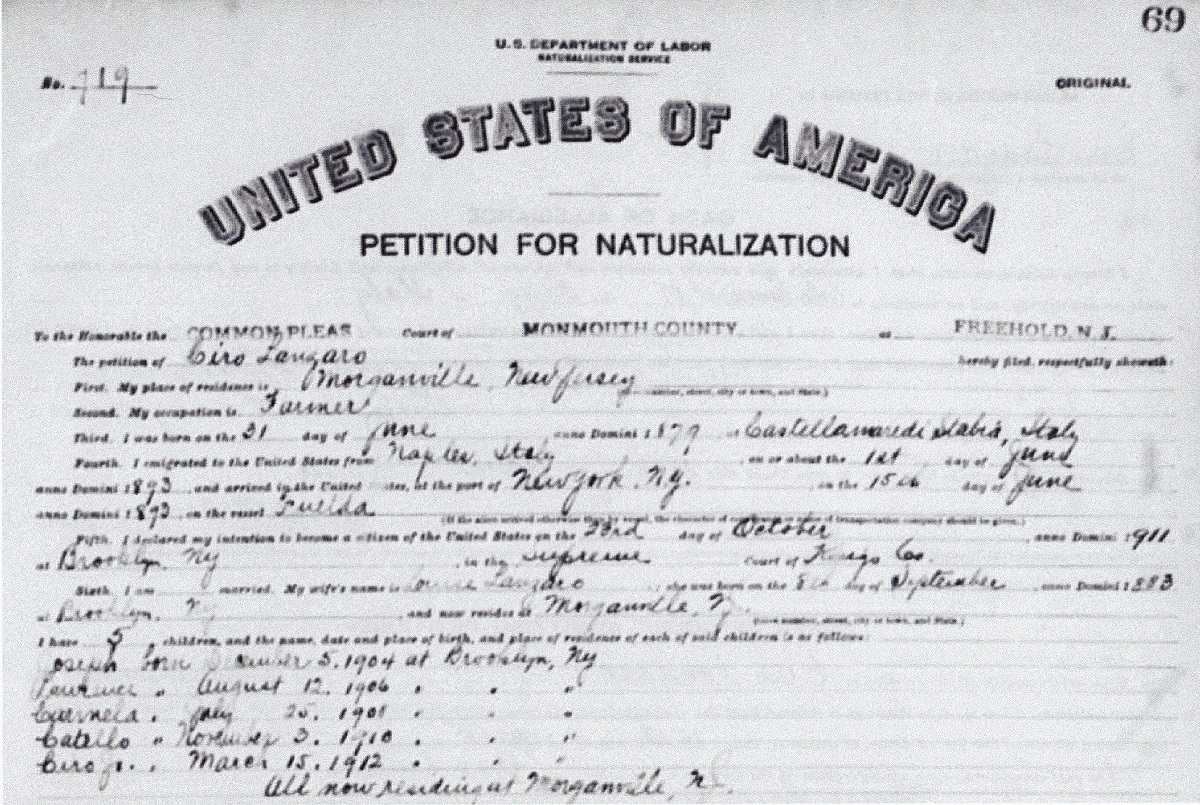 69
U.S. DEPARTMENT OF LABOR
NATURALIZATION SERVICE
No. 719
ORIGINAL
UNITED STATES OF AMERICA
PETITION FOR NATURALIZATION
To the Honorable the COMMON PLEAS Court of MONMOUTH COUNTY at FREEHOLD, N. J.
The petition of Ciro Langaro hereby filed, respectfully sheweth:
First. My place of residence is Morganville, New Jersey
Second. My occupation is Farmer
Third. I was born on the 31 day of June anno Domini 1879 at Castellamare di Stabia, Italy
Fourth. I emigrated to the United States from Naples, Italy on or about the 1st day of June
anno Domini 1893 and arrived in the United States, at the port of New York, Ny. on the 15th day of June
anno Domini 1893, on the vessel Fuelda (If the alien arrived otherwise than by vessel, the character of conveyance or name of transportation company should be given.)
Fifth. I declared my intention to become a citizen of the United States on the 23rd day of October anno Domini 1911
at Brooklyn Ny in the Supreme Court of Kings Co.
Sixth. I am married. My wife's name is Langaro she was born on the 8th day of September anno Domini 1883
at Brooklyn, Ny and now resides at Morganville, N.
I have 5 children, and the name, date and place of birth, and place of residence of each of said children is as follows:
oseph born December 5, 1904 at Brooklyn, Ny
" August 12, 1906 " " "
" July 25, " " "
Catello " November 3, 1910 " " "
Ciro Jr. " March 15, 1912 " " "
All now residing at Morganville, N.